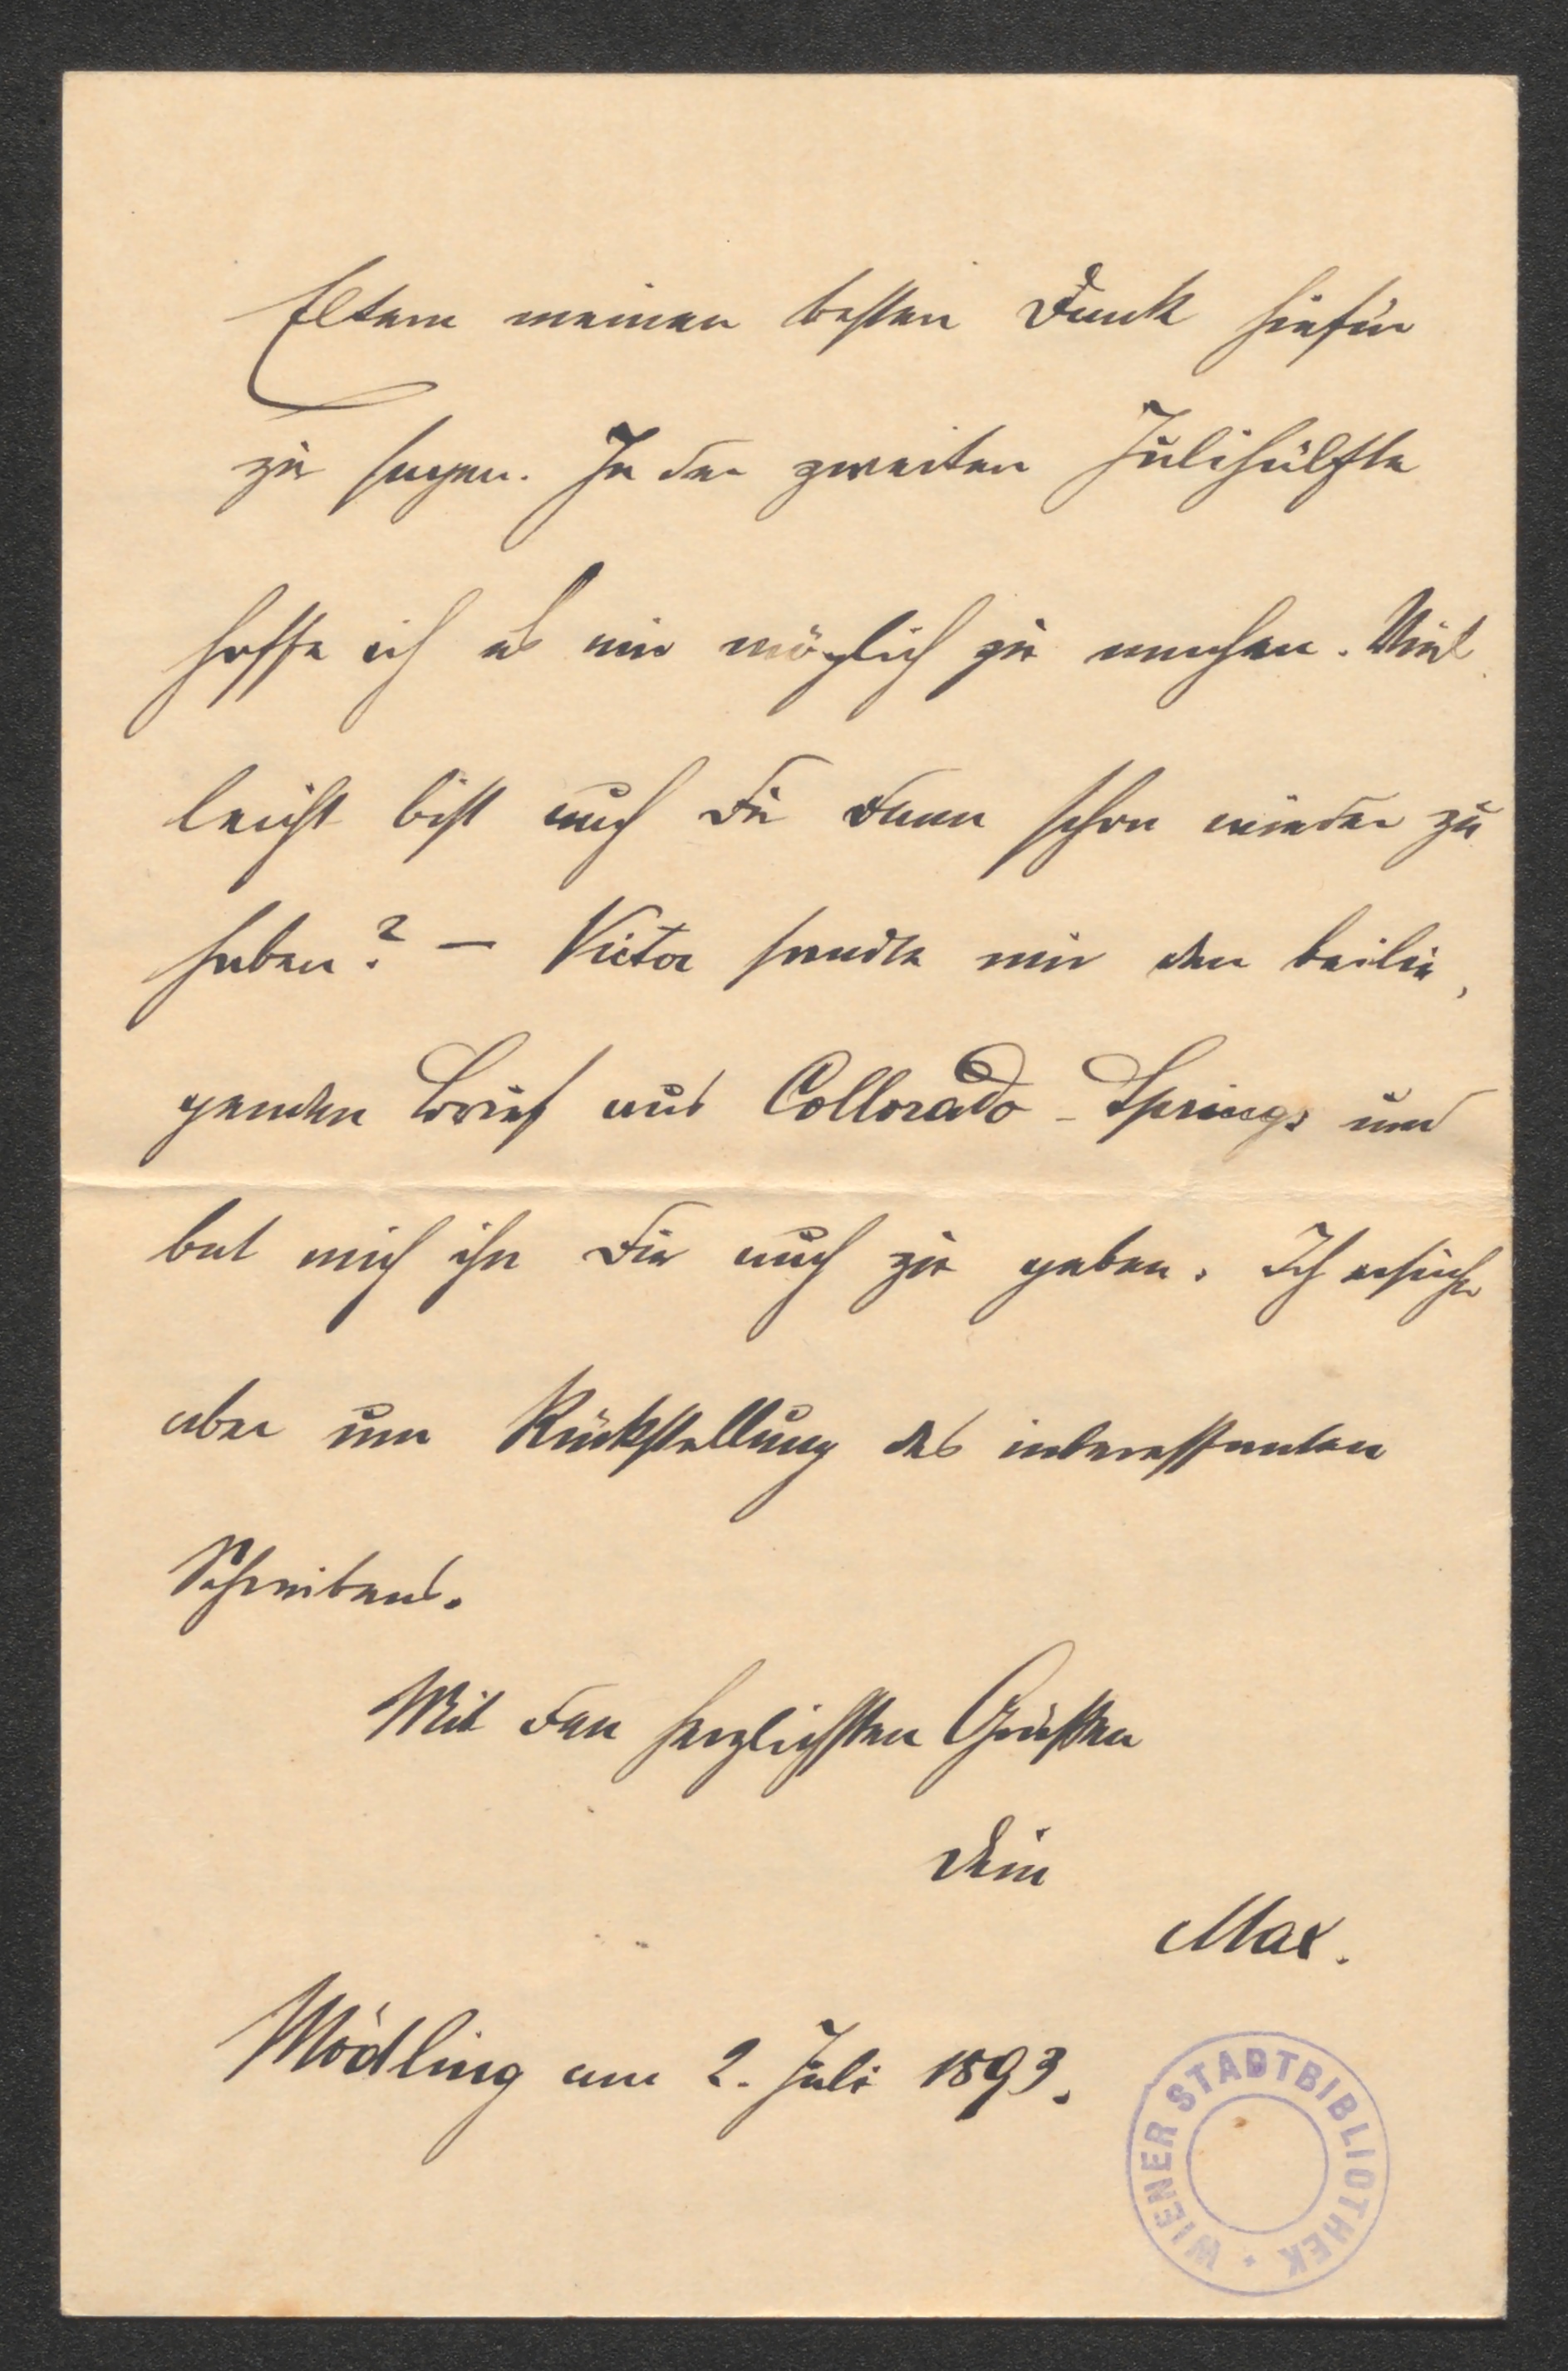 Eltern meinen besten Dank hiefür
zu sagen. In der zweiten Julihälfte
hoffe ich es mir möglich zu machen. Viel
leicht bist auch Du dann schon wieder zu
haben? — Victor sandte mir den beilie,
genden Brief aus Collorado - Springs und
bat mich ihn Dir auch zu geben. Ich ersuche
aber um Rückstellung des interessanten
Schreibens.
Mit den herzlichsten Grüßen
Dein
Max.
Mödling am 2. Juli 1893.
WIENER STADTBIBLIOTHEK